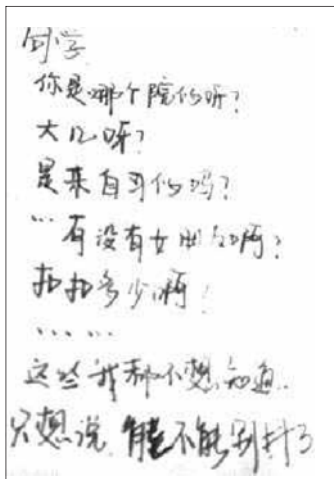 同学
你是哪个院的呀?
大几呀?
是来自习的吗?
…有没有女朋友啊?
扣扣多少啊!
……
这些我都不想知道.
只想说,能不能别抖了